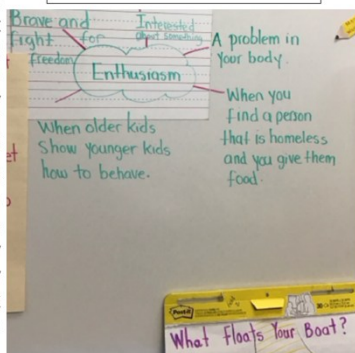 Brave and
fight for
freedom
Interested
about something
Enthusiasm
A problem in
your body.
When you
find a person
that is homeless
and you give them
food.
When older kids
show younger kids
how to behave.
et
Post-it
What Floats Your Boat?